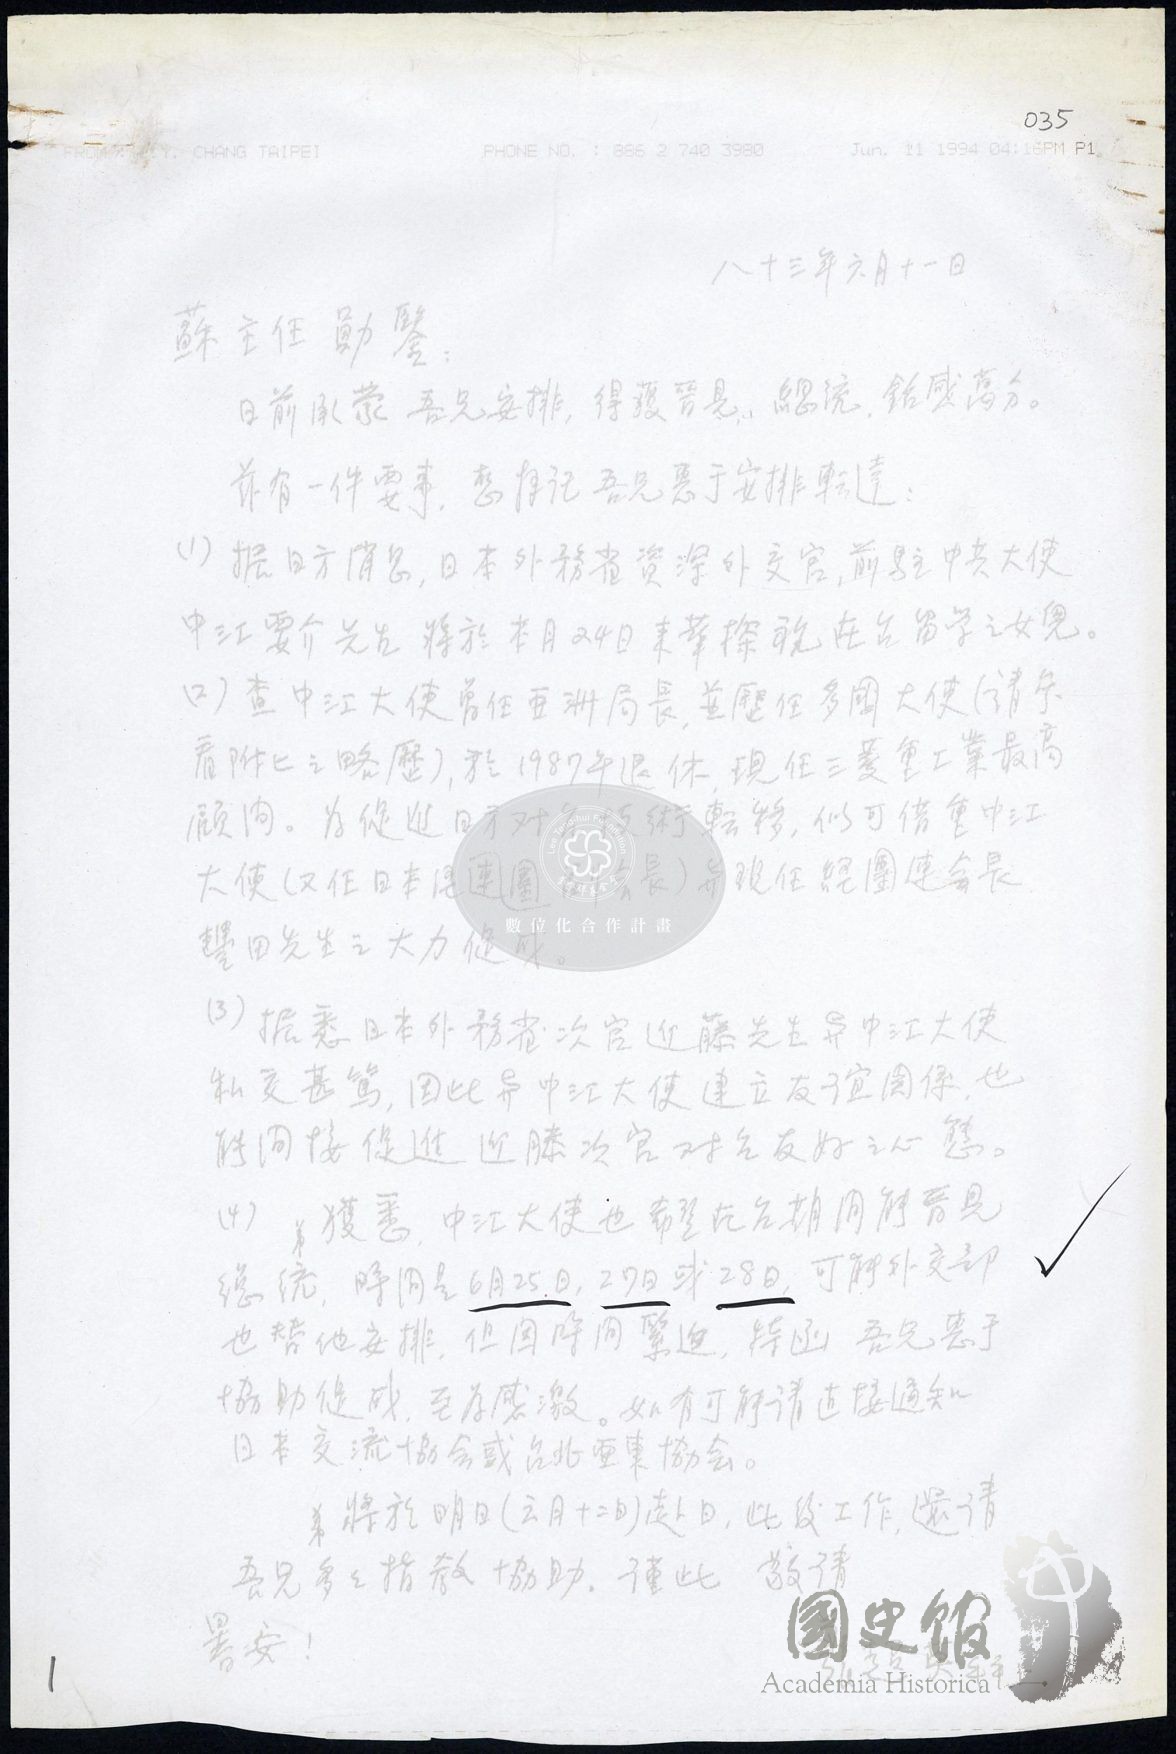 035
FROM : Y. CHANG TAIPEI PHONE NO. : 886 2 740 3980 Jun. 11 1994 04:16PM P1
八十三年六月十一日
蘇主任勛鑒：
日前承蒙 吾兄安排，得獲晉見 總統，銘感萬分。
茲有一件要事，想拜託 吾兄惠予安排転達：
(1) 据日方消息，日本外務省資深外交官，前駐中共大使
中江要介先生將於本月24日來華探視在台留学之女兒。
(2) 查中江大使曾任亜洲局長，並歷任多國大使（請參
看附上之略歷），於1987年退休，現任三菱重工業最高
顧問。為促進日方对台技術転移，似可借重中江
大使（又任日本 連團 會長）与現任經團連会長
豐田先生之大力促成。
(3) 据悉日本外務省次官近藤先生与中江大使
私交甚篤，因此与中江大使建立友誼関係，也
能间接促進近藤次官对台友好之心態。
(4) 弟獲悉，中江大使也希望在台期间能晉見
總統，時间是6月25日，27日或28日，可能外交部
也替他安排，但因時间緊迫，特函 吾兄惠予
協助促成，至為感激。如有可能請直接通知
日本交流協会或台北亜東協会。
弟將於明日（六月十二日）赴日，此段工作，還請
吾兄多多指教協助。謹此 敬請
暑安！
1
Lee Teng-hui Foundation
數位化合作計畫
國史館
Academia Historica